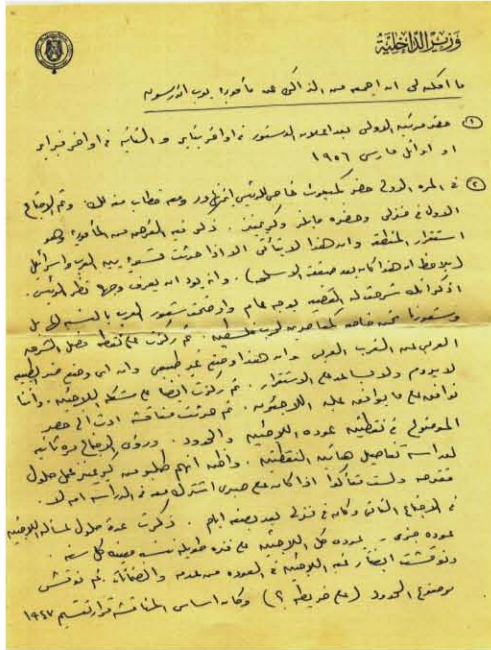 وزير الداخلية
ما أمكن لى ان اجمعه من الذاكرة عن مأمورية روبرت اندرسون
① حضر مرتين الاولى بعد اعلان الدستور فى اواخر يناير و الثانية فى اواخر فبراير
او اوائل مارس ١٩٥٦
② فى المرة الاولى حضر كمبعوث خاص للرئيس ايزنهاور ومعه خطاب منه لك. وتم الاجتماع
الاول فى منزلى وحضره . ذكر فيه الغرض من المأمورية وهو
استقرار المنطقة وان هذا لا يتأتى الا اذا حدثت تسوية بين العرب واسرائيل
(يلاحظ ان هذا كان بعد صفقة الاسلحة) . وانه يود ان يعرف وجهة نظر الرئيس.
اذكر انك شرحت له القضية بوجه عام واوضحت شعور العرب بالنسبة لها بل
وشعورنا نحن خاصة كمعاصرين لحرب فلسطين . ثم ركزت على نقطة فصل الشرق
العربى عن الغرب العربى وان هذا وضع غير طبيعى وان اى وضع ضد الطبيعة
لا يدوم ولا يساعد على الاستقرار . ثم ركزت ايضا على مشكلة اللاجئين . واننا
نوافق على ما يوافق عليه اللاجئون . ثم حدثت مناقشة ادت الى حصر
الموضوع فى نقطتين عودة اللاجئين والحدود . ورؤى الاجتماع مرة ثانية
لدراسة تفاصيل هاتين النقطتين . واظن انهم طلبوا من عمل حلول
مقترحة ولست متأكدا اذا كان على صبرى اشترك معه فى الدراسة ام لا .
فى الاجتماع الثانى وكان فى منزلى بعد بضعة ايام . ذكرت عدة حلول لمسألة اللاجئين
عودة جزئية - عودة كل اللاجئين على فترة طويلة نسبة معينة كل سنة .
ونوقشت ايضا رغبة اللاجئين فى العودة من عدمه والضمانات . ثم نوقش
موضوع الحدود (على خريطة ؟) وكان اساس المناقشة قرار تقسيم ١٩٤٧